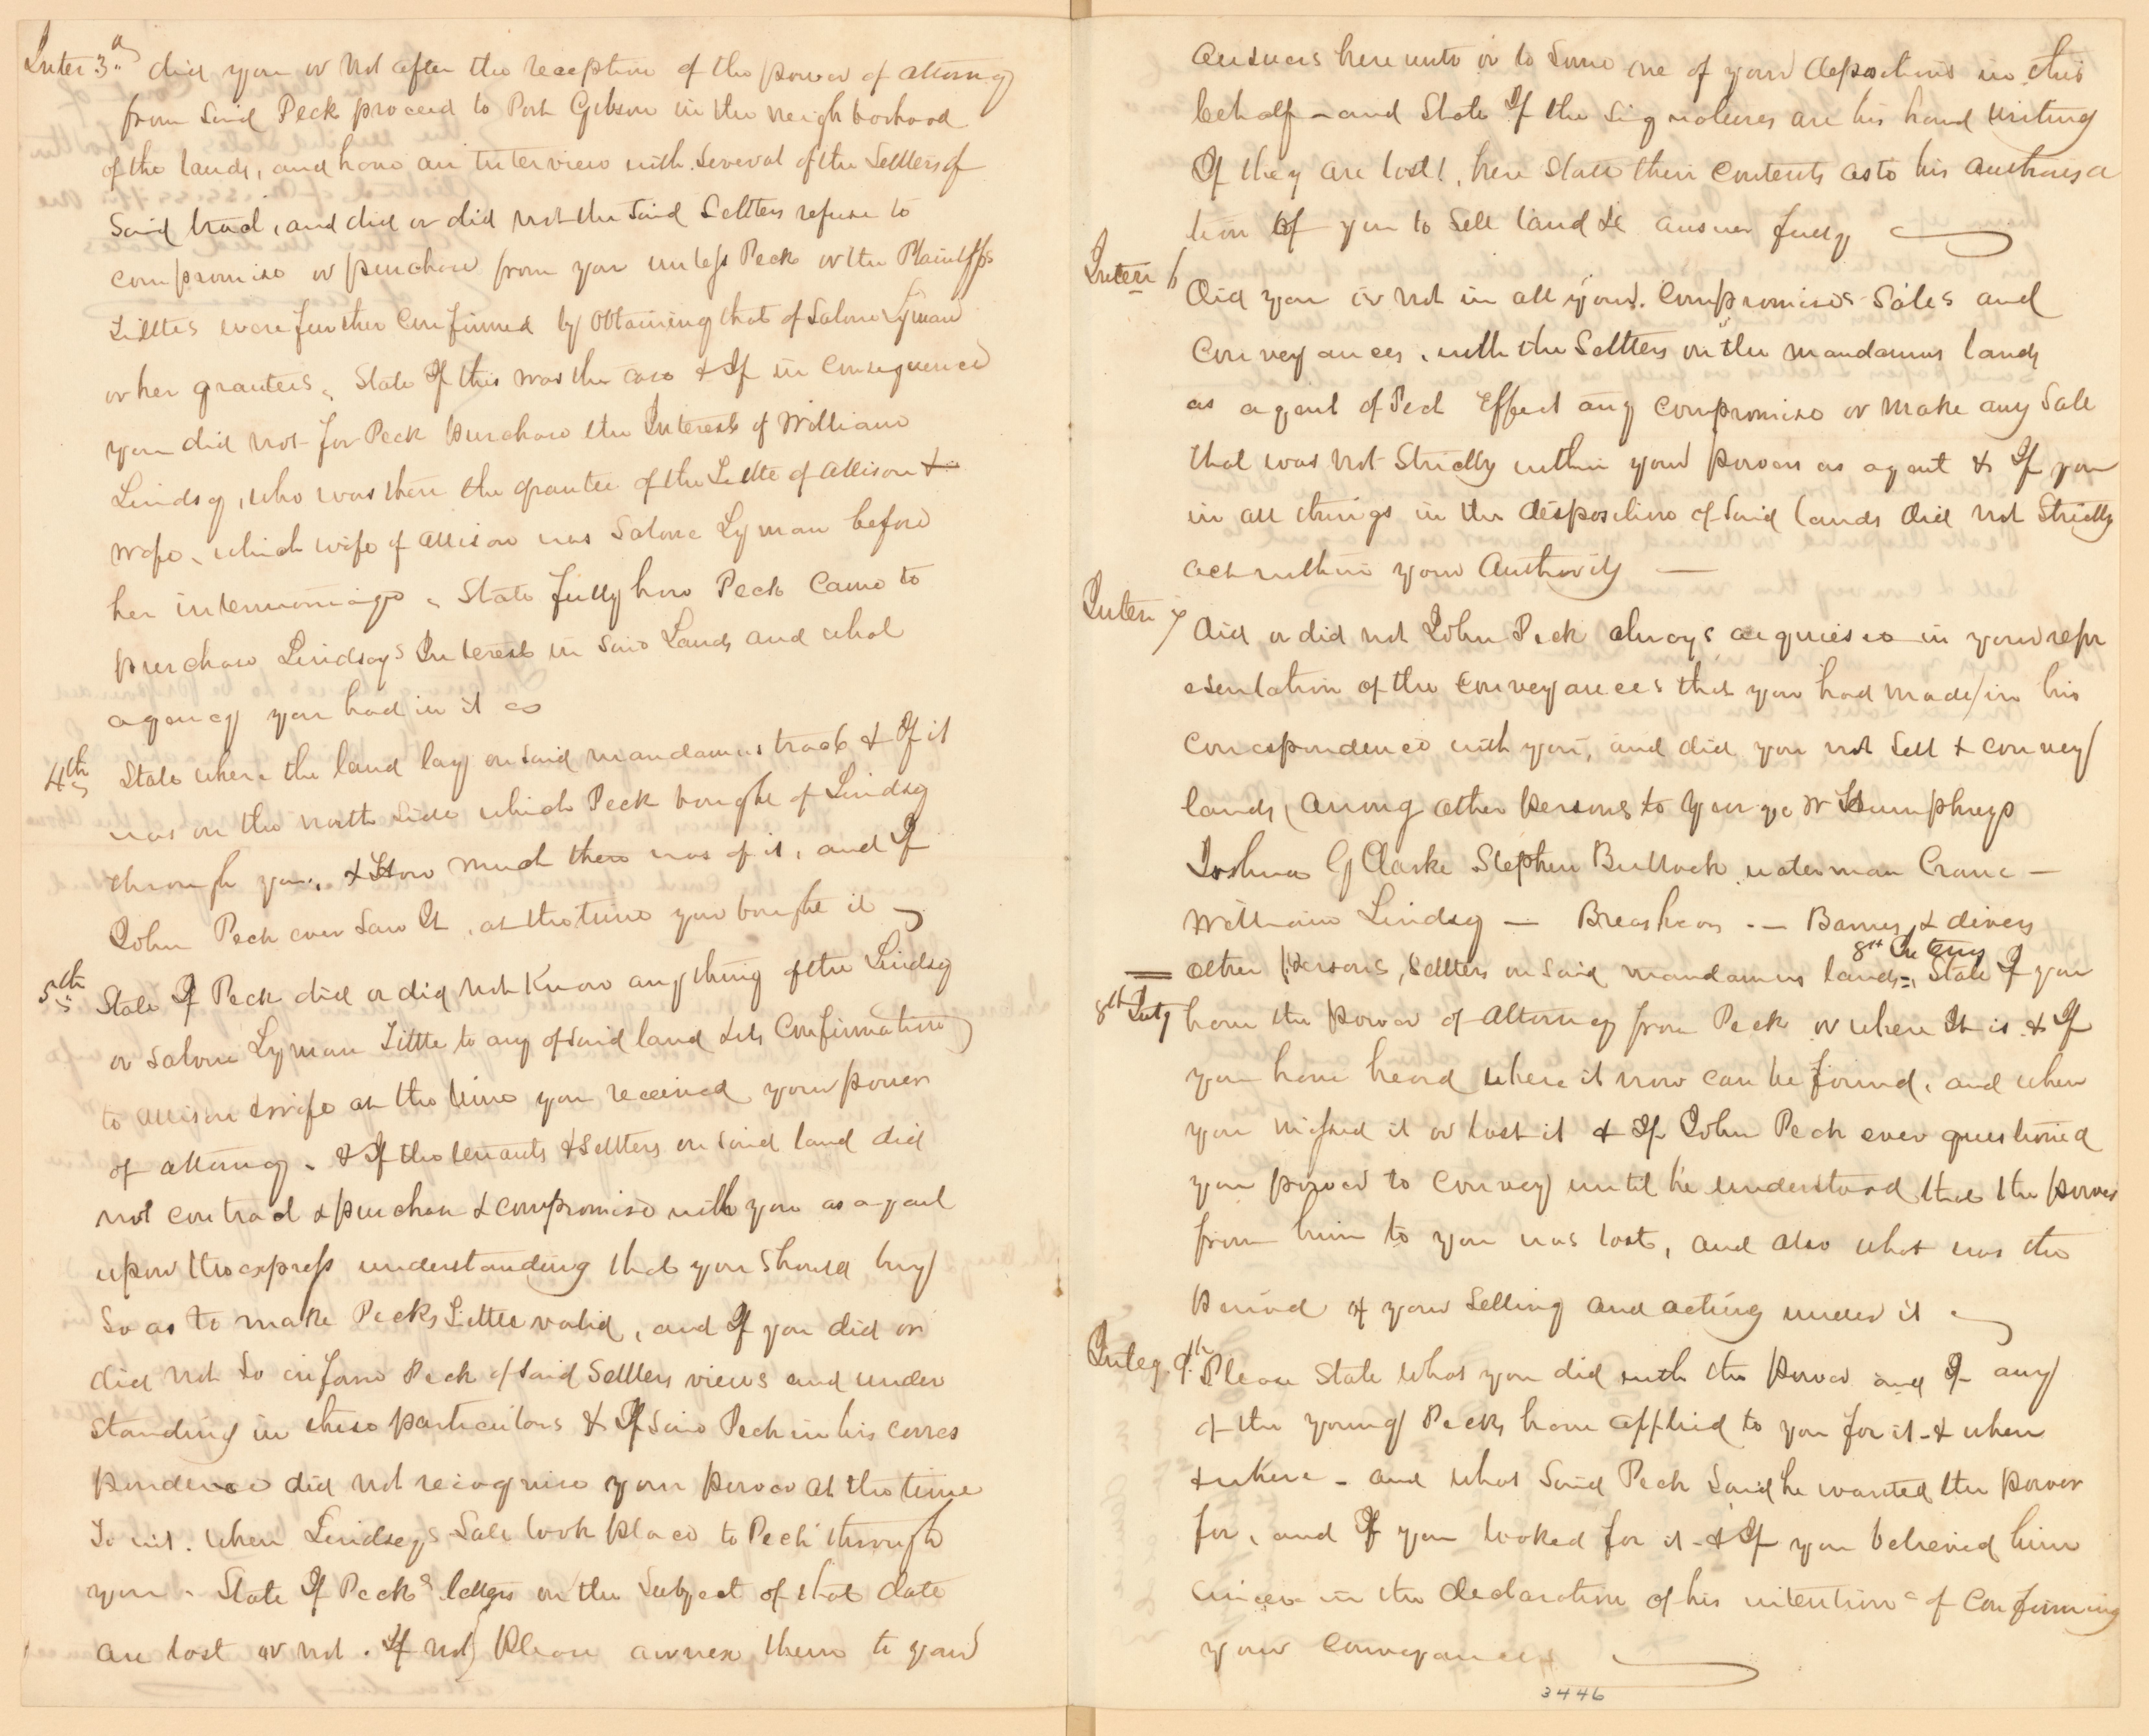 Inter 3d did you or not after the reception of the power of attorney
from Said Peck proceed to Port Gibson in the neighborhood
of the lands, and have an Interview with Several of the Settlers of
Said tract, and did or did not the Said Settlers refuse to
compromise or purchase from you unless Peck or the Plaintiffs
Tittles were further Confirmed by Obtaining that of Salome Lyman
or her grantees, State If this was the case & If in Consequence
you did not for Peck purchase the Interests of William
Lindsey, who was then the grantee of the Tittle of Allison &
wife, which wife of Allison was Salome Lyman before
her intermarriage, State fully how Peck Came to
purchase Lindseys Interests in Said Lands and what
agency you had in it
4th State where the land lay on said mandamus track & If it
was on the north side which Peck bought of Lindsey
through you, & How much there was of it, and If
John Peck ever Saw It, at the time you bought it
5th State If Peck did or did not Know anything of the Lindsey
or Salome Lyman Tittle to any of Said land & its Confirmation
to Allison & wife at the time you received your power
of attorney. & If the tenants & Settlers on Said land did
not contract & purchase & compromise with you as agent
upon the express understanding that you Should buy
So as to make Pecks Tittle valid, and If you did or
did not So inform Peck of Said Settlers views and under
standing in these particulars & If Said Peck in his corres
pondence did not recognise your power at the time
To wit. when Lindseys Sale took place to Peck through
you. State If Peck's letters on the Subject of that date
are lost or not. If not please annex them to your
answers here unto or to Some one of your depositions in this
behalf - and State If the Signatures are his hand writing
If they are lost, here State their Contents as to his Authorisa
tion of you to Sell land &c answer fully
Interi 6 Did you or not in all your Compromises Sales and
Conveyances, with the Settlers on the mandamus lands
as agent of Peck Effect any compromise or make any Sale
that was not Strictly within your powers as agent & If you
in all things in the disposition of Said lands did not Strictly
act within your Authority
Interi 7 Did or did not John Peck always acquiesce in your repr
esentation of the Conveyances that you had made in his
Correspondence with you, and did you not Sell & convey
lands among other persons to George W Humphreys
Joshua G Clarke Stephen Bullock waterman Crane -
William Lindsey - Breashears - Barnes & divers
8th Interg
other persons, Settlers on Said mandamus lands, State If you
8th Intg have the power of Attorney from Peck or where It is & If
you have heard where it now can be found, and when
you missed it or lost it & If John Peck ever questioned
your power to Convey until he understood that the power
from him to you was lost, and also what was the
period of your Selling and acting under it
Integ. 9th Please State what you did with the power and If any
of the young Pecks have applied to you for it - & when
& where - and what Said Peck Said he wanted the power
for, and If you looked for it - & If you believed him
sincere in the declaration of his intention of Confirming
your Conveyances
3446